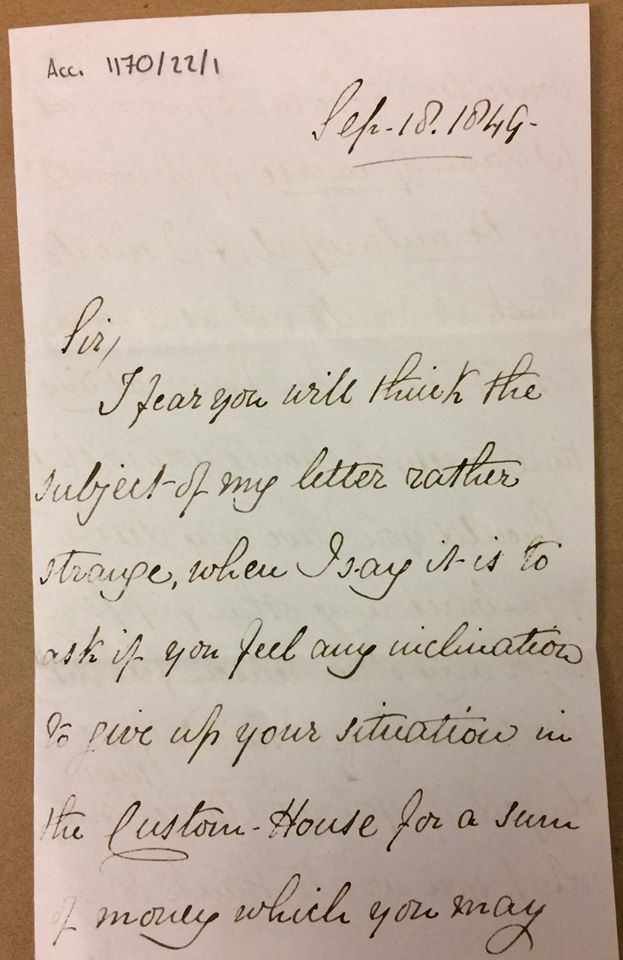 Acc. 1170/22/1
Sep. 18. 1849.
Sir,
I fear you will think the
subject of my letter rather
strange, when I say it is to
ask if you feel any inclination
to give up your situation in
the Custom-House for a sum
of money which you may